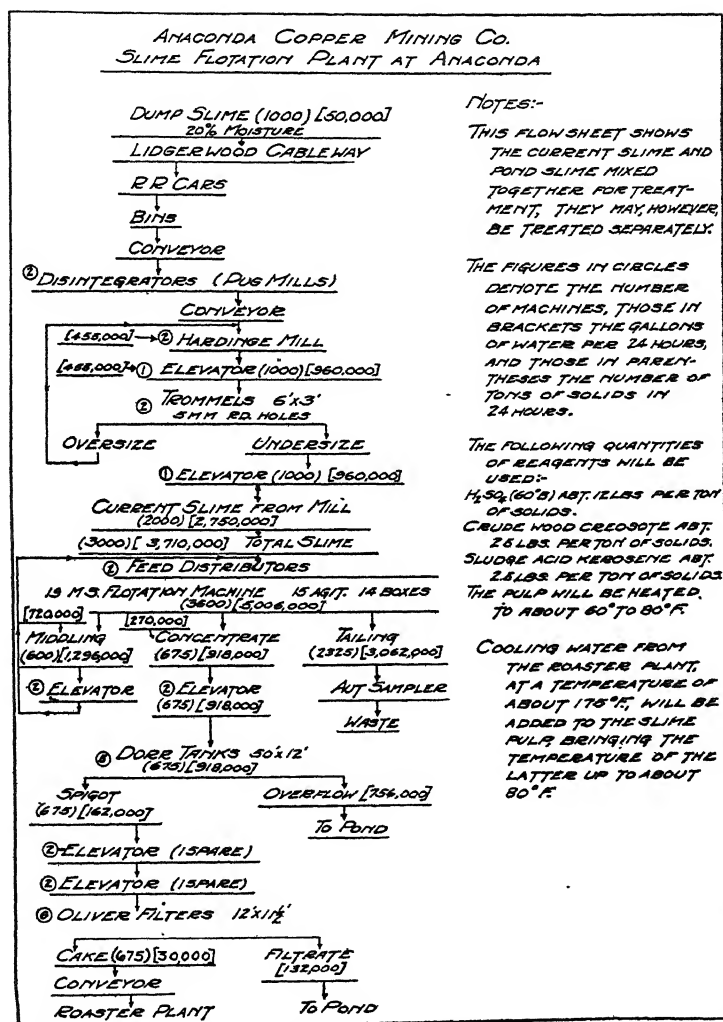 ANACONDA COPPER MINING CO.
SLIME FLOTATION PLANT AT ANACONDA
DUMP SLIME (1000) [50,000]
20% MOISTURE
LIDGERWOOD CABLEWAY
R R CARS
BINS
CONVEYOR
② DISINTEGRATORS (PUG MILLS)
CONVEYOR
[455,000] ② HARDINGE MILL
[455,000] ① ELEVATOR (1000) [960,000]
② TROMMELS 6'x3'
5MM RD. HOLES
OVERSIZE UNDERSIZE
① ELEVATOR (1000) [960,000]
CURRENT SLIME FROM MILL
(2000) [2,750,000]
(3000) [3,710,000] TOTAL SLIME
② FEED DISTRIBUTORS
M.S. FLOTATION MACHINE 15 AGIT. 14 BOXES
(3600) [5,006,000]
[720,000] [270,000]
MIDDLING CONCENTRATE TAILING
(600) [1,296,000] (675) [918,000] (2325) [3,062,000]
② ELEVATOR ② ELEVATOR AUT SAMPLER
(675) [918,000]
WASTE
DORR TANKS 50'x12'
(675) [918,000]
SPIGOT OVERFLOW [756,000]
(675) [162,000]
TO POND
② ELEVATOR (1 SPARE)
② ELEVATOR (1 SPARE)
OLIVER FILTERS 12'x11½'
CAKE (675) [30,000] FILTRATE
[132,000]
CONVEYOR
ROASTER PLANT TO POND
NOTES:-
THIS FLOW SHEET SHOWS
THE CURRENT SLIME AND
POND SLIME MIXED
TOGETHER FOR TREAT-
MENT, THEY MAY, HOWEVER,
BE TREATED SEPARATELY.
THE FIGURES IN CIRCLES
DENOTE THE NUMBER
OF MACHINES, THOSE IN
BRACKETS THE GALLONS
OF WATER PER 24 HOURS,
AND THOSE IN PAREN-
THESES THE NUMBER OF
TONS OF SOLIDS IN
24 HOURS.
THE FOLLOWING QUANTITIES
OF REAGENTS WILL BE
USED:-
H₂SO₄ (60°B) ABT. LBS PER TON
OF SOLIDS.
CRUDE WOOD CREOSOTE ABT.
LBS. PER TON OF SOLIDS.
SLUDGE ACID KEROSENE ABT.
LBS. PER TON OF SOLIDS.
THE PULP WILL BE HEATED
TO ABOUT 60° TO 80°F.
COOLING WATER FROM
THE ROASTER PLANT,
AT A TEMPERATURE OF
ABOUT 175°F, WILL BE
ADDED TO THE SLIME
PULP, BRINGING THE
TEMPERATURE OF THE
LATTER UP TO ABOUT
80°F.